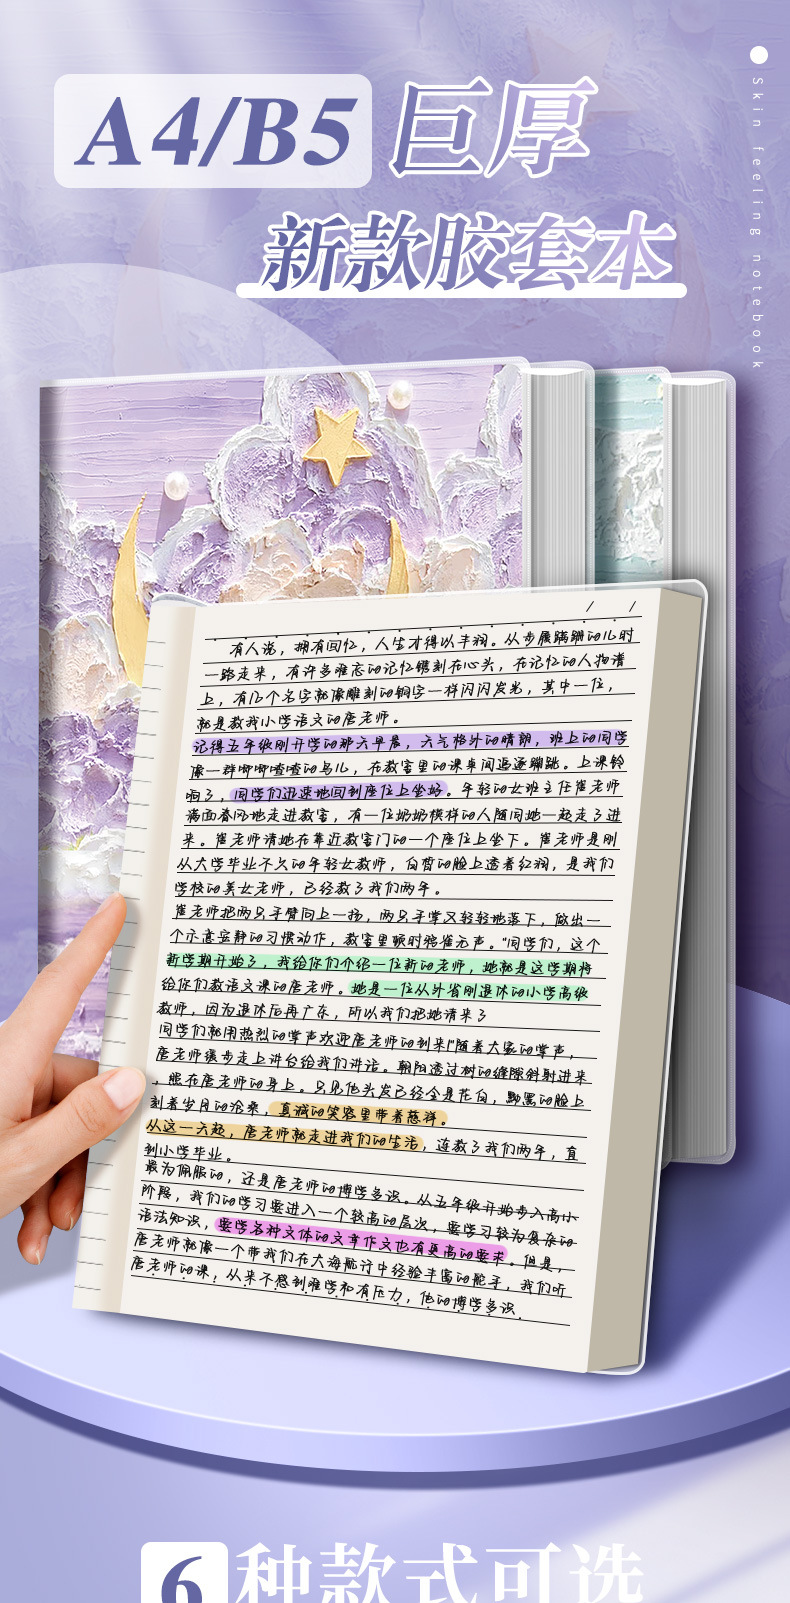 A4/B5 巨厚
新款胶套本
Skin feeling notebook
/ /
有人说，拥有回忆，人生才得以丰润。从步履蹒跚的儿时
一路走来，有许多难忘的记忆镌刻在心头，在记忆的人物谱
上，有几个名字就像雕刻的铜字一样闪闪发光，其中一位，
就是教我小学语文的唐老师。
记得五年级刚开学的那六早晨，六气格外的晴朗，班上的同学
像一群唧唧喳喳的鸟儿，在教室里的课桌间追逐蹦跳。上课铃
响了，同学们迅速地回到座位上坐好。年轻的女班主任崔老师
满面春风地走进教室，有一位奶奶模样的人随同她一起走了进
来。崔老师请她在靠近教室门的一个座位上坐下。崔老师是刚
从大学毕业不久的年轻女教师，白皙的脸上透着红润，是我们
学校的美女老师，已经教了我们两年。
崔老师把两只手臂向上一扬，两只手掌又轻轻地落下，做出一
个示意安静的习惯动作，教室里顿时鸦雀无声。"同学们，这个
新学期开始了，我给你们介绍一位新的老师，她就是这学期将
给你们教语文课的唐老师。她是一位从外省刚退休的小学高级
教师，因为退休后再广东，所以我们把她请来了
同学们就用热烈的掌声欢迎唐老师的到来!"随着大家的掌声，
唐老师缓步走上讲台给我们讲话。朝阳透过树的缝隙斜射进来
，照在唐老师的身上。只见他头发已经全是花白，黝黑的脸上
刻着岁月的沧桑，真诚的笑容里带着慈祥。
从这一六起，唐老师就走进我们的生活，连教了我们两年，直
到小学毕业。
最为佩服的，还是唐老师的博学多识。从五年级开始步入高小
阶段，我们的学习要进入一个较高的层次，要学习较为复杂的
语法知识，要学各种文体的文章作文也有更高的要求。但是，
唐老师就像一个带我们在大海航行中经验丰富的舵手，我们听
唐老师的课，从来不感到难学和有压力，他的博学多识.
6种款式可选